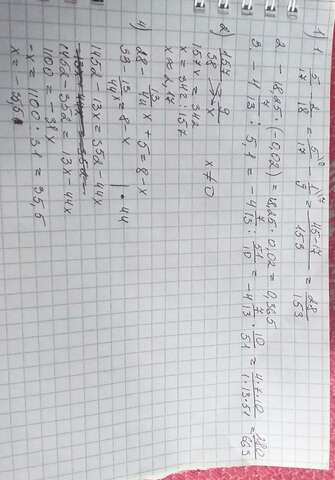 1) 1. 5/17 - 2/18 = 5/17 - 1/9 = 45-17/153 = 28/153
2. -18,25 · (-0,02) = 18,25 · 0,02 = 0,365
3. -4 7/13 : 5,1 = -4 7/13 : 51/10 = -4 7/13 · 10/51 = 4·7·10/1·13·51 = 280/663
2) 157/38 = 9/x x≠0
157x = 342
x = 342 : 157
x ≈ 2,17
4) 28 - 13/44 x + 5 = 8 - x
33 - 13/44 x = 8 - x | · 44
1452 - 13x = 352 - 44x
1452 - 352 = 13x - 44x
1100 = -31x
-x = 1100 : 31 = 35,5
x = -35,5